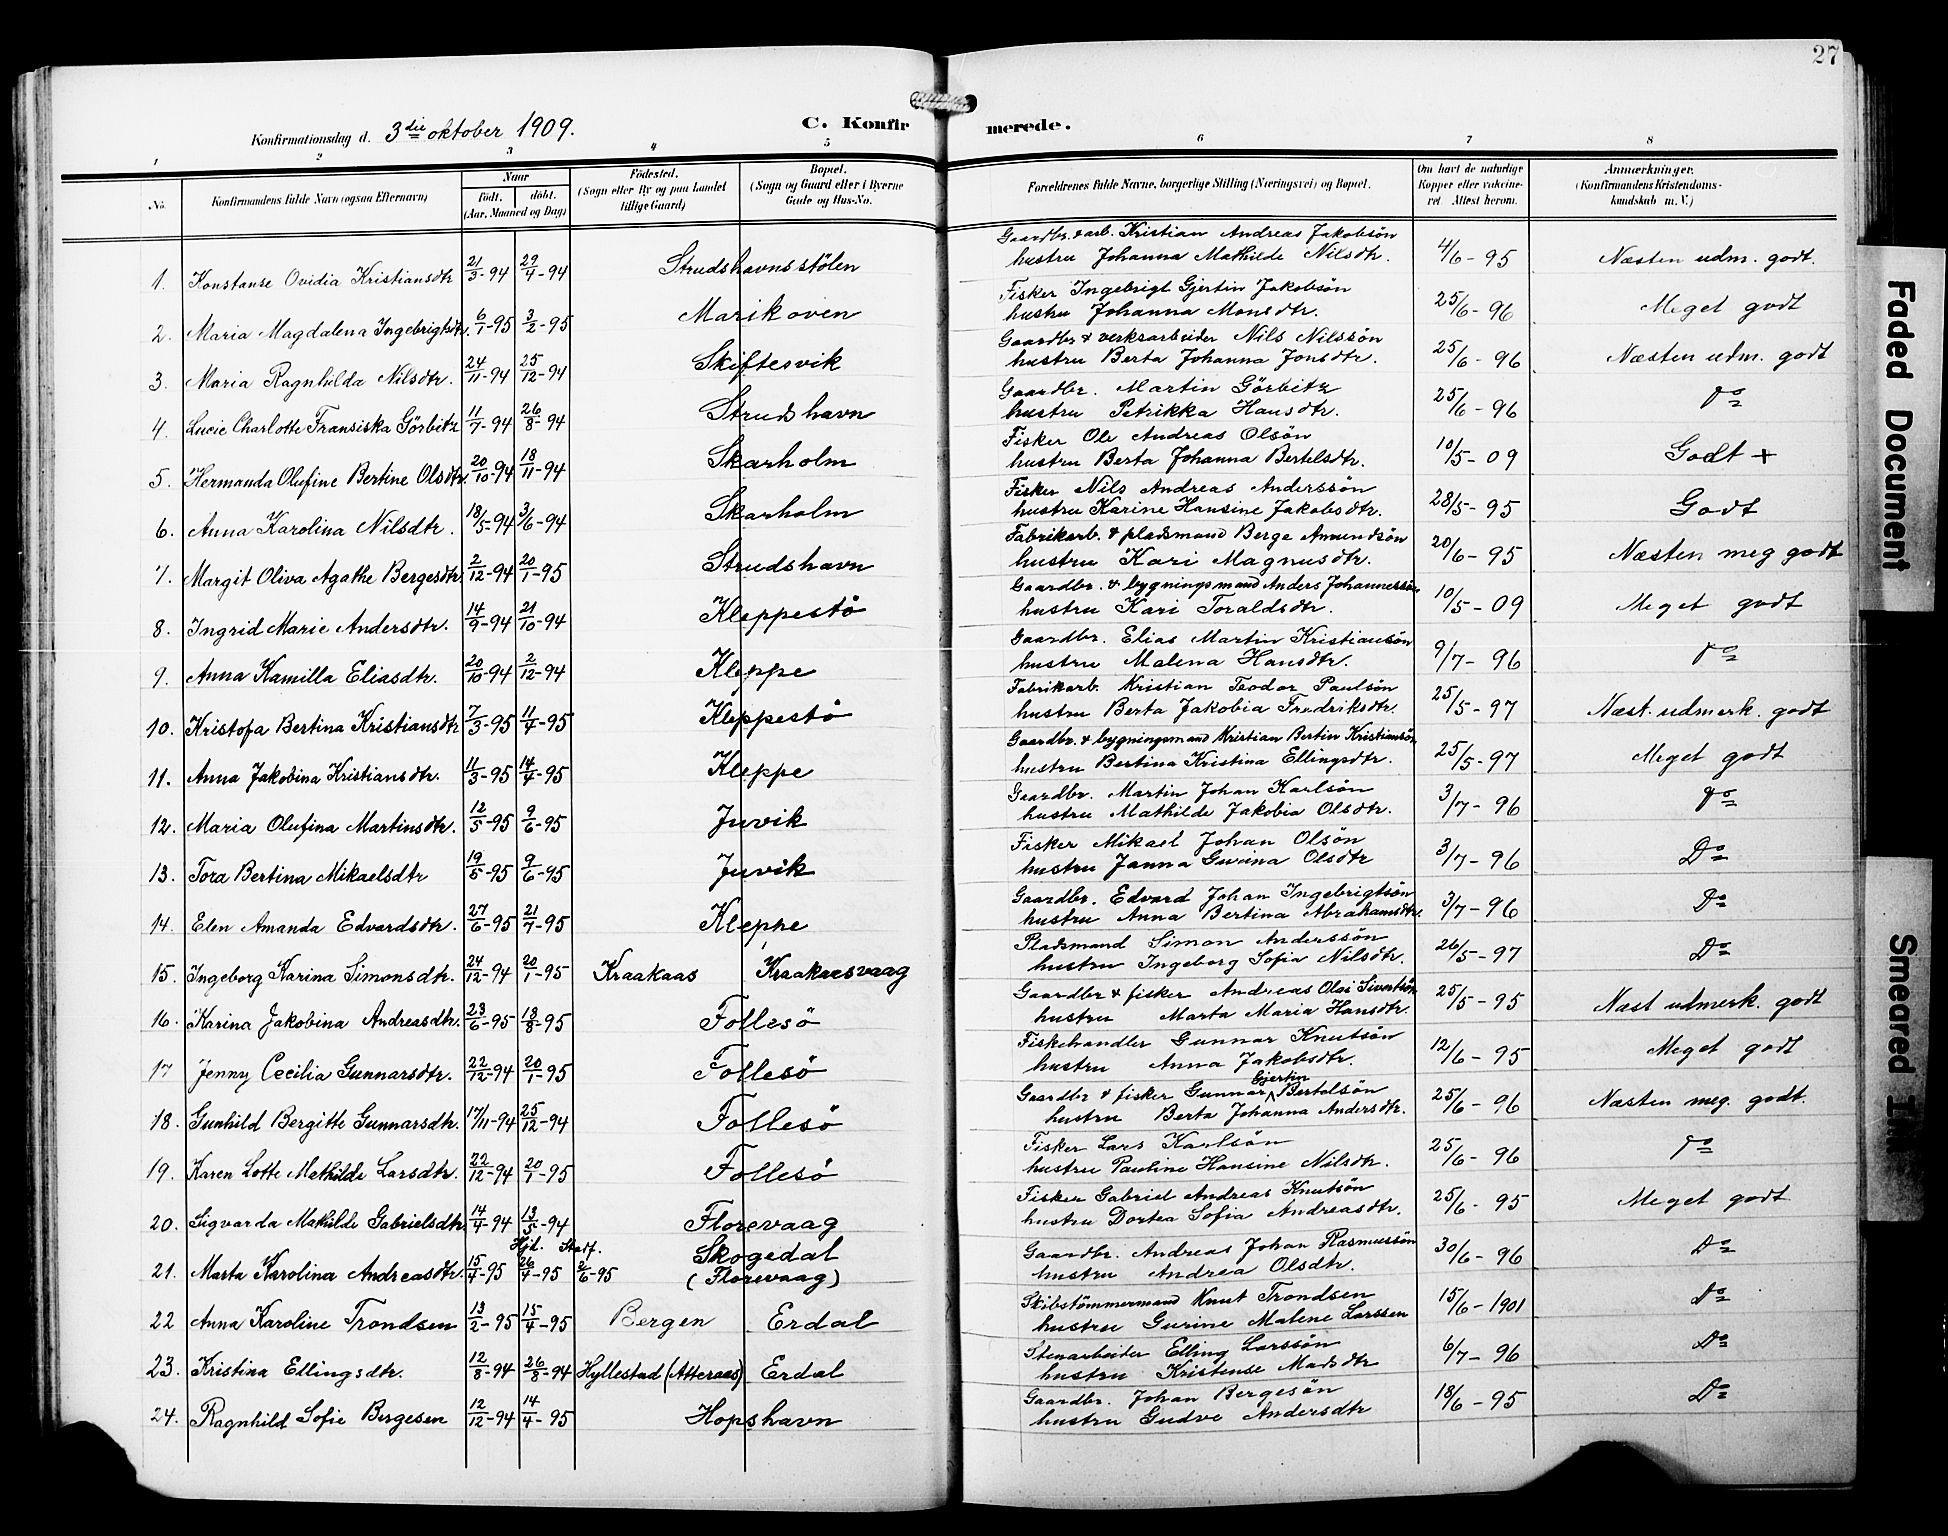 27
Konfirmationsdag d. 3die oktober 1909.
C. Konfirmerede.
1 2 3 4 5 6 7 8
No. Konfirmandens fulde Navn (ogsaa Efternavn) Naar født. døbt. (Aar, Maaned og Dag) Fødested. (Sogn eller By og paa Landet tillige Gaard) Bopæl. (Sogn og Gaard eller i Byerne Gade og Hus-No. Forældrenes fulde Navne, borgerlige Stilling (Næringsvei) og Bopæl. Om havt de naturlige Kopper eller vaccineret. Attest herom. Anmærkninger. (Konfirmandens Kristendomskundskab m. V.)
1. Konstanse Ovidia Kristiansdtr 21/3-94 29/4-94 Strudshavnsstölen Gaardbr. & arb. Kristian Andreas Jakobsön
hustru Johanna Mathilde Nilsdtr. 4/6-95 Næsten udm. godt.
2. Maria Magdalena Ingebrigtsdtr. 6/1-95 3/2-95 Marikoven Fisker Ingebrigt Gjertin Jakobsön
hustru Johanna Monsdtr. 25/6-96 Meget godt
3. Maria Ragnhilda Nilsdtr. 24/11-94 25/12-94 Skiftesvik Gaardbr & verksarbeider Nils Nilssön
hustru Berta Johanna Jonsdtr. 25/6-96 Næsten udm. godt
4. Lucie Charlotte Fransiska Görbitz 11/7-94 26/8-94 Strudshavn Gaardbr. Martin Görbitz
hustru Petrikka Hansdtr. 25/6-96 Do
5. Hermanda Olufine Bertine Olsdtr. 20/10-94 18/11-94 Skarholm Fisker Ole Andreas Olsön
hustru Berta Johanna Bertelsdtr. 10/5-09 Godt +
6. Anna Karolina Nilsdtr. 18/5-94 3/6-94 Skarholm Fisker Nils Andreas Anderssön
hustru Karine Hansine Jakobsdtr. 28/5-95 Godt
7. Margit Oliva Agathe Bergesdtr. 2/12-94 20/1-95 Strudshavn Fabrikarb. & pladsmand Berge Amundsön
hustru Kari Magnusdtr. 20/6-95 Næsten meg godt
8. Ingrid Marie Andersdtr. 14/9-94 21/10-94 Kleppestö Gaardbr. & bygningsmand Anders Johannessön
hustru Kari Toraldsdtr. 10/5-09 Meget godt
9. Anna Kamilla Eliasdtr. 20/10-94 2/12-94 Kleppe Gaardbr. Elias Martin Kristiansön
hustru Malena Hansdtr. 9/7-96 Do
10. Kristofa Bertina Kristiansdtr 7/3-95 11/4-95 Kleppestö Fabrikarb. Kristian Teodor Paulsön
hustru Berta Jakobia Fredriksdtr. 25/5-97 Næst. udmerk. godt
11. Anna Jakobina Kristiansdtr. 11/3-95 14/4-95 Kleppe Gaardbr. & bygningsmand Kristian Bertin Kristiansön
hustru Bertina Kristina Ellingsdtr. 25/5-97 Meget godt
12. Maria Olufina Martinsdtr. 12/5-95 9/6-95 Juvik Gaardbr. Martin Johan Karlsön
hustru Mathilde Jakobia Olsdtr. 3/7-96 Do
13. Tora Bertina Mikaelsdtr 19/5-95 9/6-95 Juvik Fisker Mikael Johan Olsön
hustru Janna Gurina Olsdtr 3/7-96 Do
14. Elen Amanda Edvardsdtr. 27/6-95 21/7-95 Kleppe Gaardbr. Edvard Johan Ingebrigtsön
hustru Anna Bertina Abrahamsdtr. 3/7-96 Do
15. Ingeborg Karina Simonsdtr. 24/12-94 20/1-95 Kraakaas Kraakaasvaag Pladsmand Simon Anderssön
hustru Ingeborg Sofia Nilsdtr. 26/5-97 Do
16. Karina Jakobina Andreasdtr. 23/6-95 13/8-95 Follesö Gaardbr & fisker Andreas Olai Sivertsön
hustru Marta Maria Hansdtr. 25/5-95 Næst udmerk. godt
17 Jenny Cecilia Gunnarsdtr. 22/12-94 20/1-95 Follesö Fiskehandler Gunnar Knutsön
hustru Anna Jakobsdtr. 12/6-95 Meget godt
18. Gunhild Bergitte Gunnarsdtr. 17/11-94 25/12-94 Follesö Gaardbr & fisker Gunnar Gjertin Bertelsön
hustru Berta Johanna Andersdtr. 25/6-96 Næsten meg. godt.
19. Karen Lotte Mathilde Larsdtr. 22/12-94 20/1-95 Follesö Fisker Lars Karlsön
hustru Pauline Hansine Nilsdtr. 25/6-96 Do
20. Sigvarda Mathilde Gabrielsdtr. 14/4-94 13/5-94 Florevaag Fisker Gabriel Andreas Knutsön
hustru Dortea Sofia Andreasdtr. 25/6-95 Meget godt
Hjd. Stadf.
21. Marta Karolina Andreasdtr. 15/4-95 26/4-95 2/6-95 Skogedal (Florevaag) Gaardbr. Andreas Johan Rasmussön
hustru Andrea Olsdtr. 30/6-96 Do
22 Anna Karoline Trondsen 13/2-95 15/4-95 Bergen Erdal Skibstömmermand Knut Trondsen
hustru Gurine Malene Larssen 15/6-1901 Do
23. Kristina Ellingsdtr. 12/8-94 26/8-94 Hyllestad (Atteraas) Erdal Stenarbeider Elling Larssön
hustru Kristense Madsdtr 6/7-96 Do
24. Ragnhild Sofie Bergesen 12/12-94 14/4-95 Hopshavn Gaardbr. Johan Bergesön
hustru Gudve Andersdtr 18/6-95 Do
Faded Document
Smeared Ink